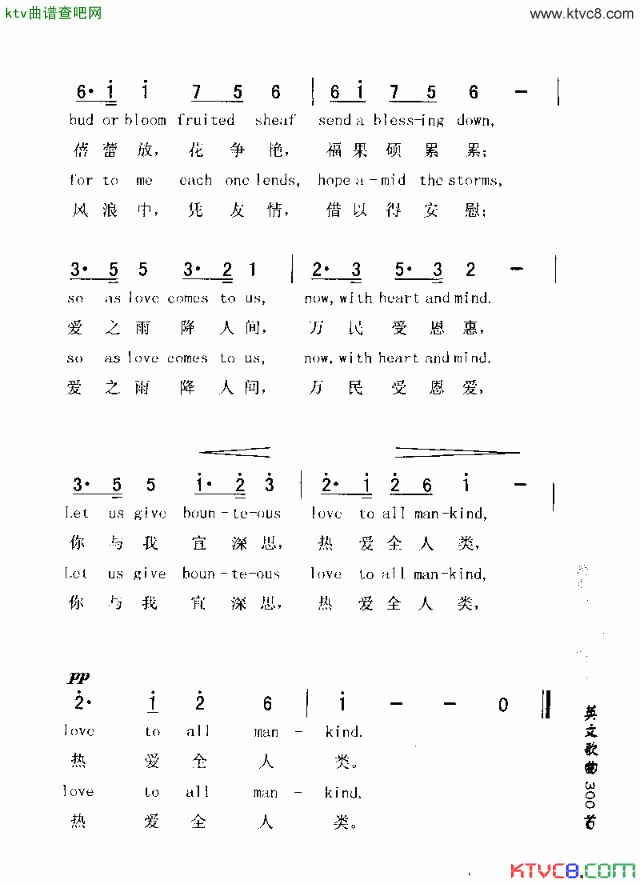 ktv曲谱查吧网
www.ktvc8.com
6· i i 7 5 6 | 6 i 7 5 6 - |
bud or bloom fruited sheaf send a bless-ing down,
蓓蕾放，花争艳，福果硕累累；
for to me each one lends, hope a-mid the storms,
风浪中，凭友情，借以得安慰；
3· 5 5 3· 2 1 | 2· 3 5· 3 2 - |
so as love comes to us, now, with heart and mind.
爱之雨降人间，万民受恩惠，
so as love comes to us, now, with heart and mind.
爱之雨降人间，万民受恩爱，
3· 5 5 i· 2 3 | 2· i 2 6 i - |
Let us give boun-te-ous love to all man-kind,
你与我宜深思，热爱全人类，
Let us give boun-te-ous love to all man-kind,
你与我宜深思，热爱全人类，
pp
2· i 2 6 | i - - 0 ‖
love to all man - kind.
热爱全人类。
love to all man - kind.
热爱全人类。
英文歌曲300首
KTVC8.COM